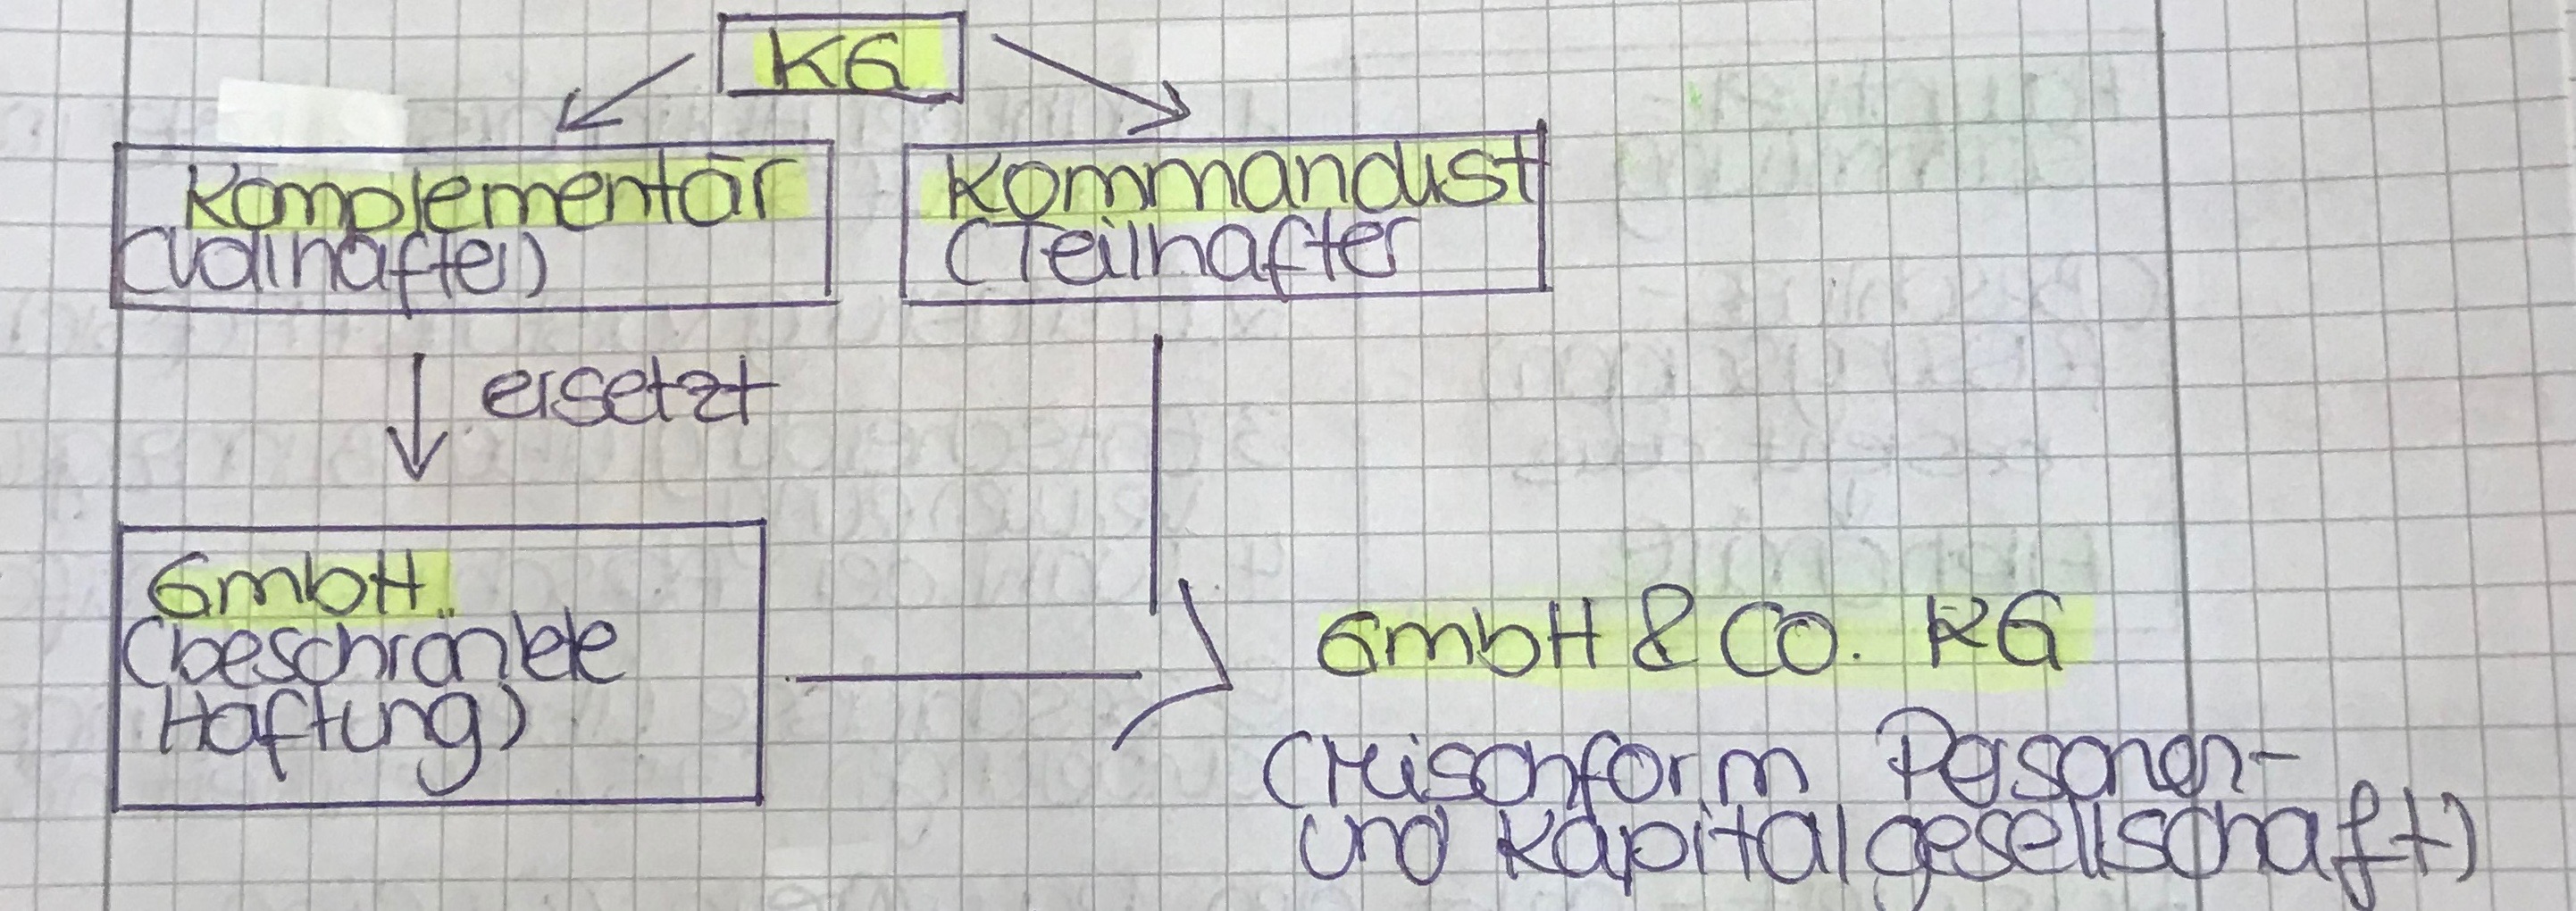 KG
Komplementär
(Vollhafter)
Kommandist
(Teilhafter
ersetzt
GmbH
(beschränkte
Haftung)
GmbH & Co. KG
(Mischform Personen-
und Kapitalgesellschaft)